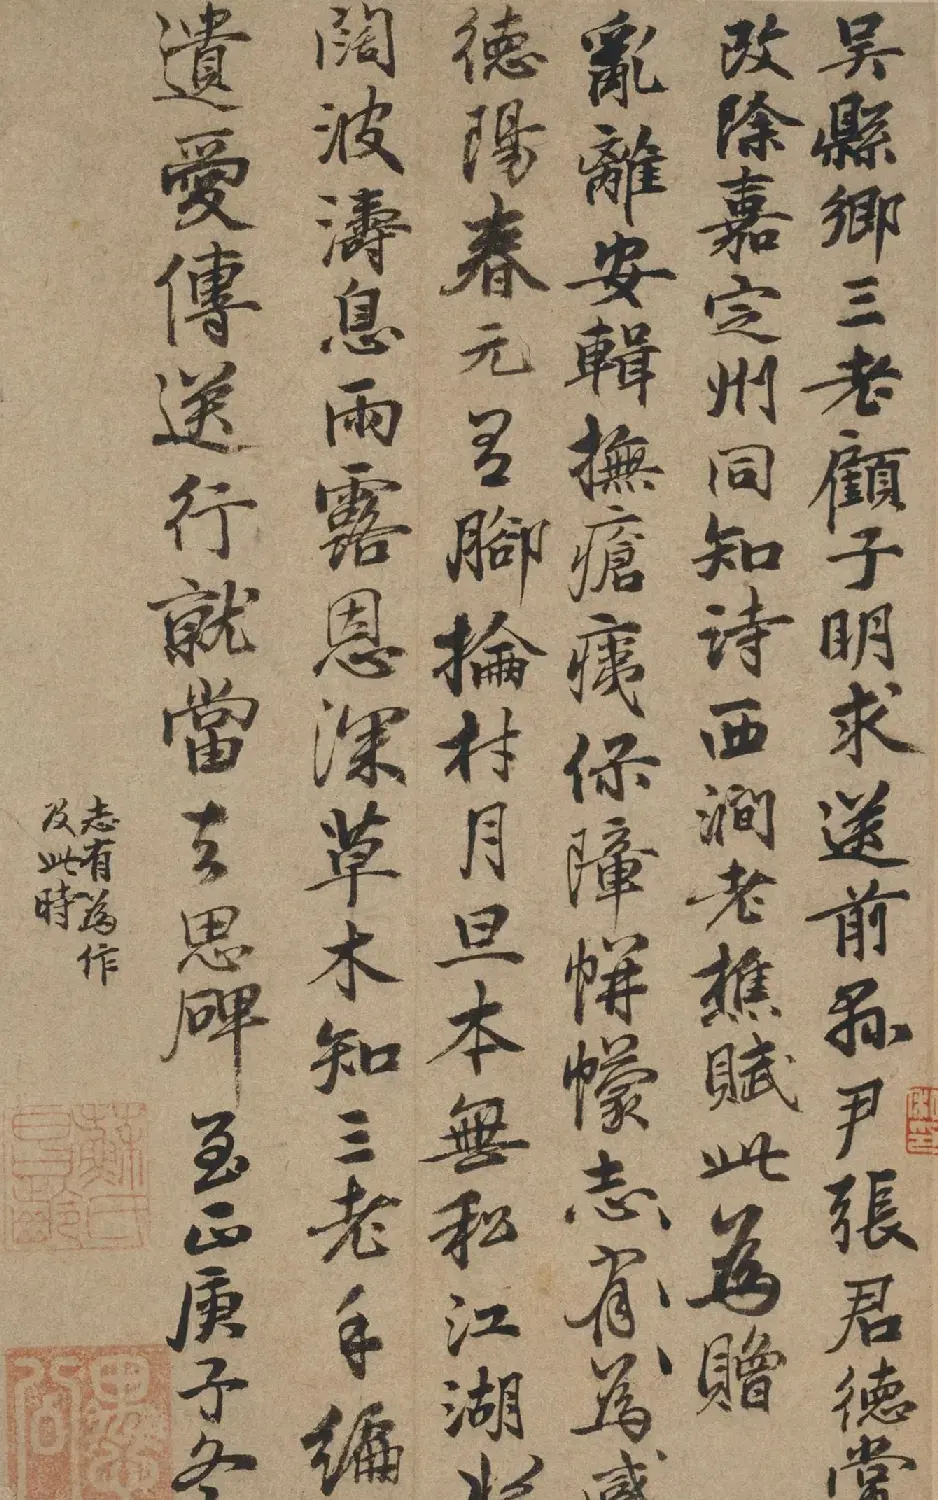 吴縣鄉三老顧子明求送前縣尹張君德常
改除嘉定州同知詩西澗老樵賦此為贈
亂離安輯撫瘡痍保障帡幪志有為感
德陽春元有腳掄材月旦本無私江湖水
闊波濤息雨露恩深草木知三老手編
遺愛傳送行就當去思碑至正庚子冬
志有為作
及此時